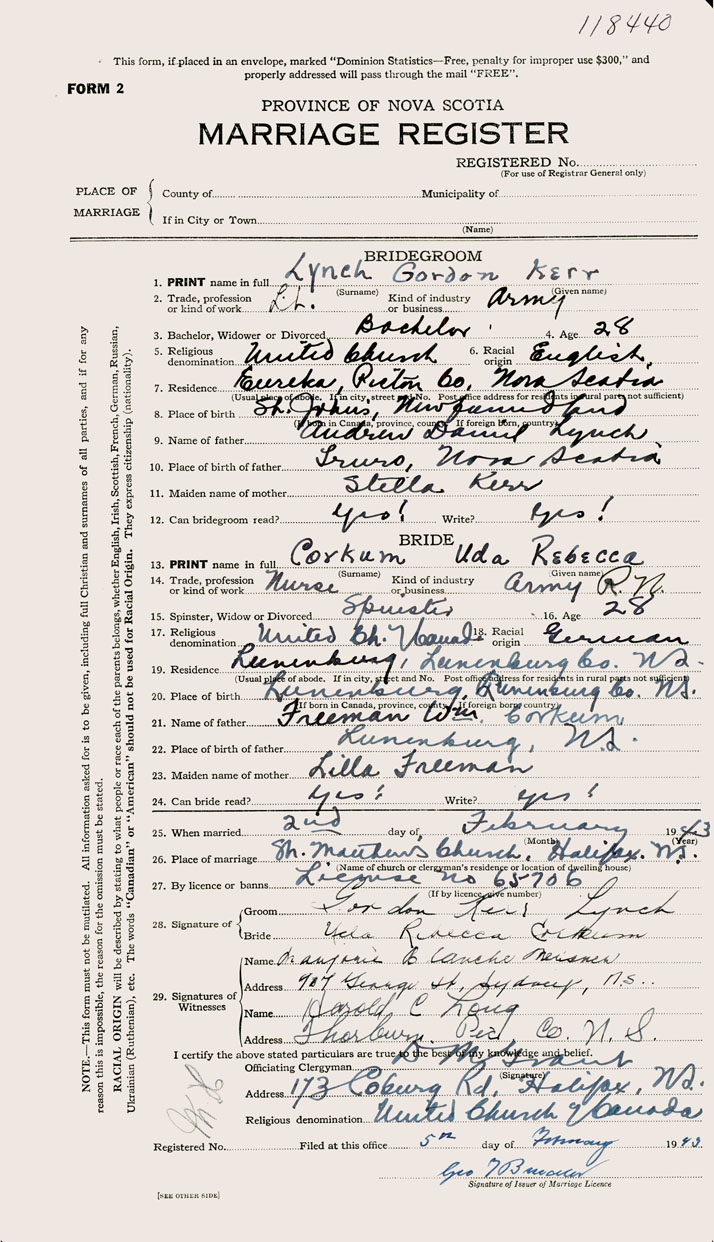 118440
This form, if placed in an envelope, marked "Dominion Statistics—Free, penalty for improper use $300," and
properly addressed will pass through the mail "FREE".
FORM 2
PROVINCE OF NOVA SCOTIA
MARRIAGE REGISTER
REGISTERED No.
(For use of Registrar General only)
PLACE OF MARRIAGE
County of Municipality of
If in City or Town
(Name)
BRIDEGROOM
1. PRINT name in full Lynch Gordon Kerr
(Surname) (Given name)
2. Trade, profession or kind of work Lt. Kind of industry or business Army
3. Bachelor, Widower or Divorced Bachelor 4. Age 28
5. Religious denomination United Church 6. Racial origin English
7. Residence Eureka, Pictou Co, Nova Scotia
(Usual place of abode. If in city, street and No. Post office address for residents in rural parts not sufficient)
8. Place of birth St. John's, Newfoundland
(If born in Canada, province, county. If foreign born, country)
9. Name of father Andrew Daniel Lynch
10. Place of birth of father Truro, Nova Scotia
11. Maiden name of mother Stella Kerr
12. Can bridegroom read? Yes! Write? Yes!
BRIDE
13. PRINT name in full Corkum Uda Rebecca
(Surname) (Given name)
14. Trade, profession or kind of work Nurse Kind of industry or business Army R.N.
15. Spinster, Widow or Divorced Spinster 16. Age 28
17. Religious denomination United Ch. of Canada 18. Racial origin German
19. Residence Lunenburg, Lunenburg Co. N.S.
(Usual place of abode. If in city, street and No. Post office address for residents in rural parts not sufficient)
20. Place of birth Lunenburg, Lunenburg Co. N.S.
(If born in Canada, province, county. If foreign born, country)
21. Name of father Freeman Wm. Corkum
22. Place of birth of father Lunenburg, N.S.
23. Maiden name of mother Lilla Freeman
24. Can bride read? Yes! Write? Yes!
25. When married 2nd day of February 1943
(Month) (Year)
26. Place of marriage St. Matthew's Church, Halifax. N.S.
(Name of church or clergyman's residence or location of dwelling house)
27. By licence or banns License no 65706
(If by licence, give number)
28. Signature of Groom Gordon Kerr Lynch
Bride Uda Rebecca Corkum
29. Signatures of Witnesses
Name Marjorie Blanche Meisner
Address 907 George St, Sydney, N.S..
Name Harold C Long
Address Thorburn, Pict Co. N.S.
I certify the above stated particulars are true to the best of my knowledge and belief.
Officiating Clergyman D. M. Grant
(Signature)
Address 173 Coburg Rd, Halifax, N.S.
Religious denomination United Church of Canada
Registered No. Filed at this office 5th day of February 1943
Signature of Issuer of Marriage Licence
[SEE OTHER SIDE]
NOTE.—This form must not be mutilated. All information asked for is to be given, including full Christian and surnames of all parties, and if for any
reason this is impossible, the reason for the omission must be stated.
RACIAL ORIGIN will be described by stating to what people or race each of the parents belongs, whether English, Irish, Scottish, French, German, Russian,
Ukrainian (Ruthenian), etc. The words "Canadian" or "American" should not be used for Racial Origin. They express citizenship (nationality).